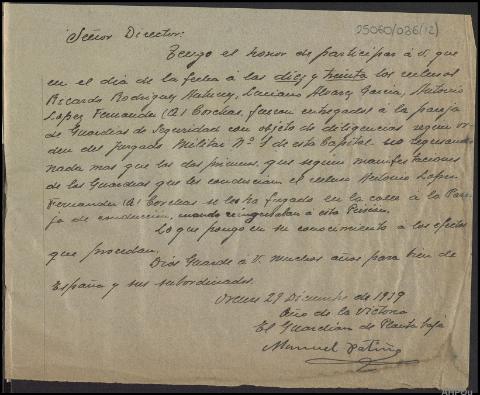 25060/036(12)
Señor Director:
Tengo el honor de participar á V. que
en el dia de la fecha á las diez y treinta los reclusos
Ricardo Rodriguez Luciano Alvarez Garcia, Antonio
Lopez Fernandez (A) Corchas, fueron entregados á la pareja
de Guardias de Seguridad con objeto de diligencias según or
den del Juzgado Militar Nº 1 de esta Capital. no regresando
nada mas que los dos primeros, que según manifestaciones
de los Guardias que les conducian el recluso Antonio Lopez
Fernandez (A) Corchas se les ha fugado en la calle á la Pare
ja de conducción, cuando reingresaban a esta Prisión.
Lo que pongo en su conocimiento a los efectos
que procedan.
Dios Guarde á V. muchos años para bien de
España y sus subordinados.
Orense 29 Diciembre de 1939
Año de la Victoria
El Guardian de Planta baja
Manuel Patiño
AHPOu